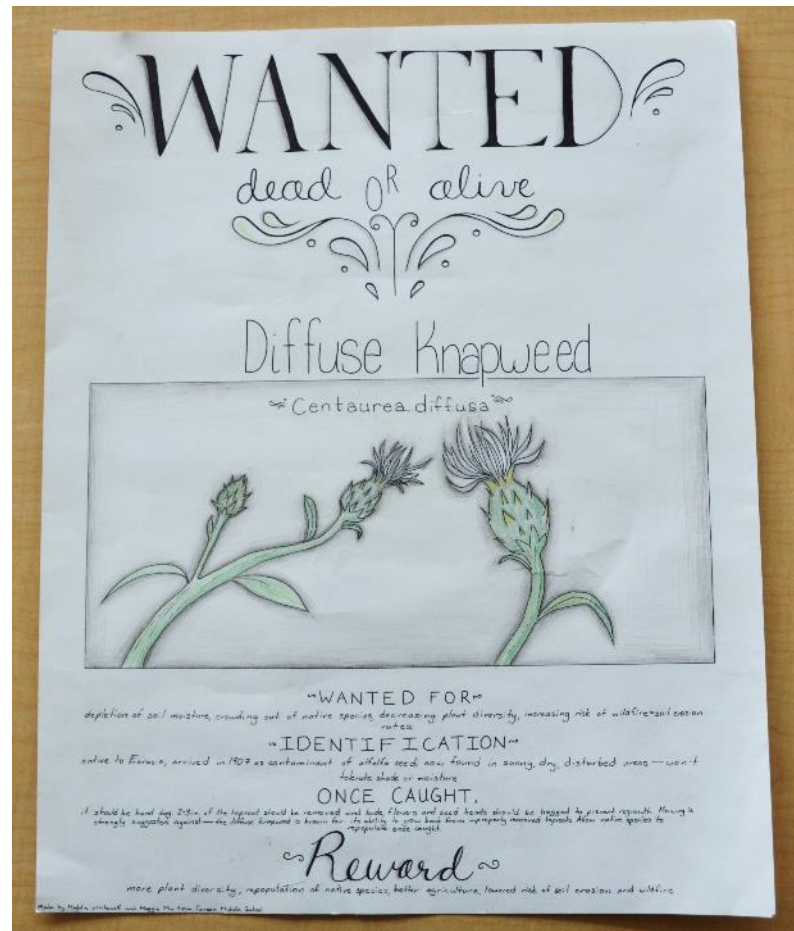 WANTED
dead OR alive
Diffuse Knapweed
Centaurea diffusa
WANTED FOR
depletion of soil moisture, crowding out of native species, decreasing plant diversity, increasing risk of wildfire + soil erosion
rates
IDENTIFICATION
native to Eurasia, arrived in 1907 as contaminant of alfalfa seed; now found in sunny, dry, disturbed areas — won't
tolerate shade or moisture
ONCE CAUGHT,
it should be hand dug. 2-3in. of the taproot should be removed and buds, flowers and seed heads should be bagged to prevent regrowth. Mowing is
strongly suggested against — the diffuse knapweed is known for its ability to grow back from improperly removed taproots. Allow native species to
repopulate once caught.
Reward
more plant diversity, repopulation of native species, better agriculture, lowered risk of soil erosion and wildfire
Made by and Maggie Middle School